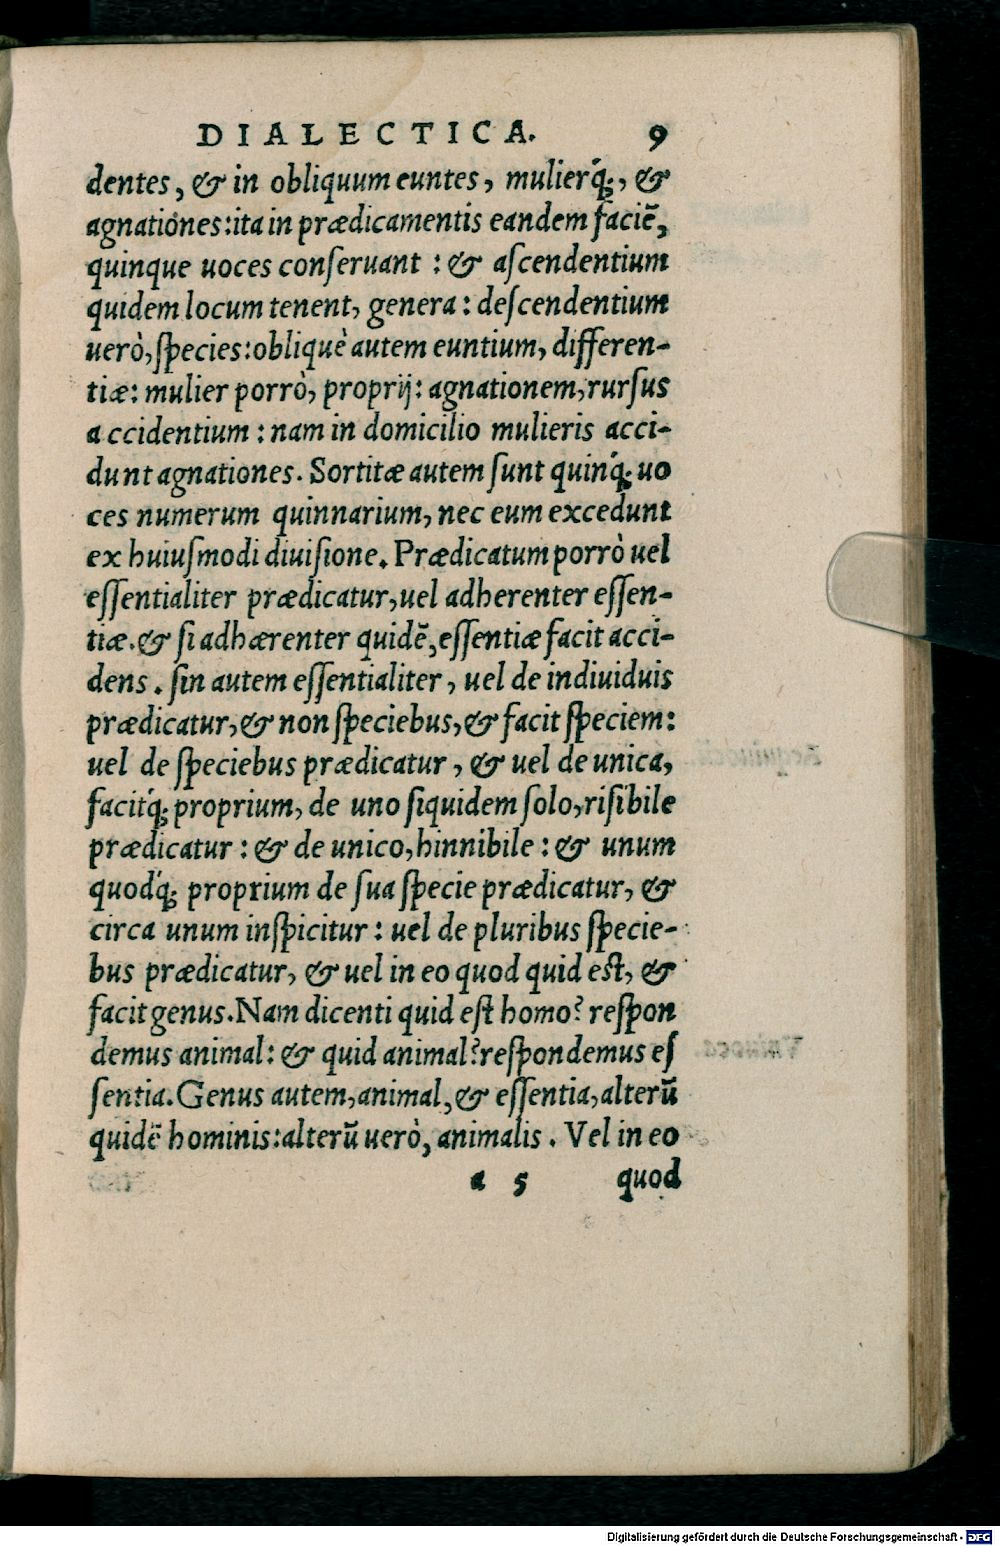 DIALECTICA. 9
dentes, & in obliquum euntes, mulierq́;, &
agnationes: ita in prædicamentis eandem faciē,
quinque uoces conſeruant : & aſcendentium
quidem locum tenent, genera : deſcendentium
uerò, ſpecies: obliquè autem euntium, differen-
tiæ: mulier porrò, proprij: agnationem, rurſus
accidentium : nam in domicilio mulieris acci-
dunt agnationes. Sortitæ autem ſunt quinq́; uo
ces numerum quinnarium, nec eum excedunt
ex huiuſmodi diuiſione. Prædicatum porrò uel
eſſentialiter prædicatur, uel adherenter eſſen-
tiæ. & ſi adhærenter quidē, eſſentiæ facit acci-
dens. ſin autem eſſentialiter, uel de indiuiduis
prædicatur, & non ſpeciebus, & facit ſpeciem:
uel de ſpeciebus prædicatur, & uel de unica,
facitq́; proprium, de uno ſiquidem ſolo, riſibile
prædicatur : & de unico, hinnibile : & unum
quodq́; proprium de ſua ſpecie prædicatur, &
circa unum inſpicitur : uel de pluribus ſpecie-
bus prædicatur, & uel in eo quod quid eſt, &
facit genus. Nam dicenti quid eſt homo? reſpon
demus animal: & quid animal? reſpondemus eſ
ſentia. Genus autem, animal, & eſſentia, alterū
quidē hominis: alterū uerò, animalis. Vel in eo
a 5 quod
Digitalisierung gefördert durch die Deutsche Forschungsgemeinschaft - DFG